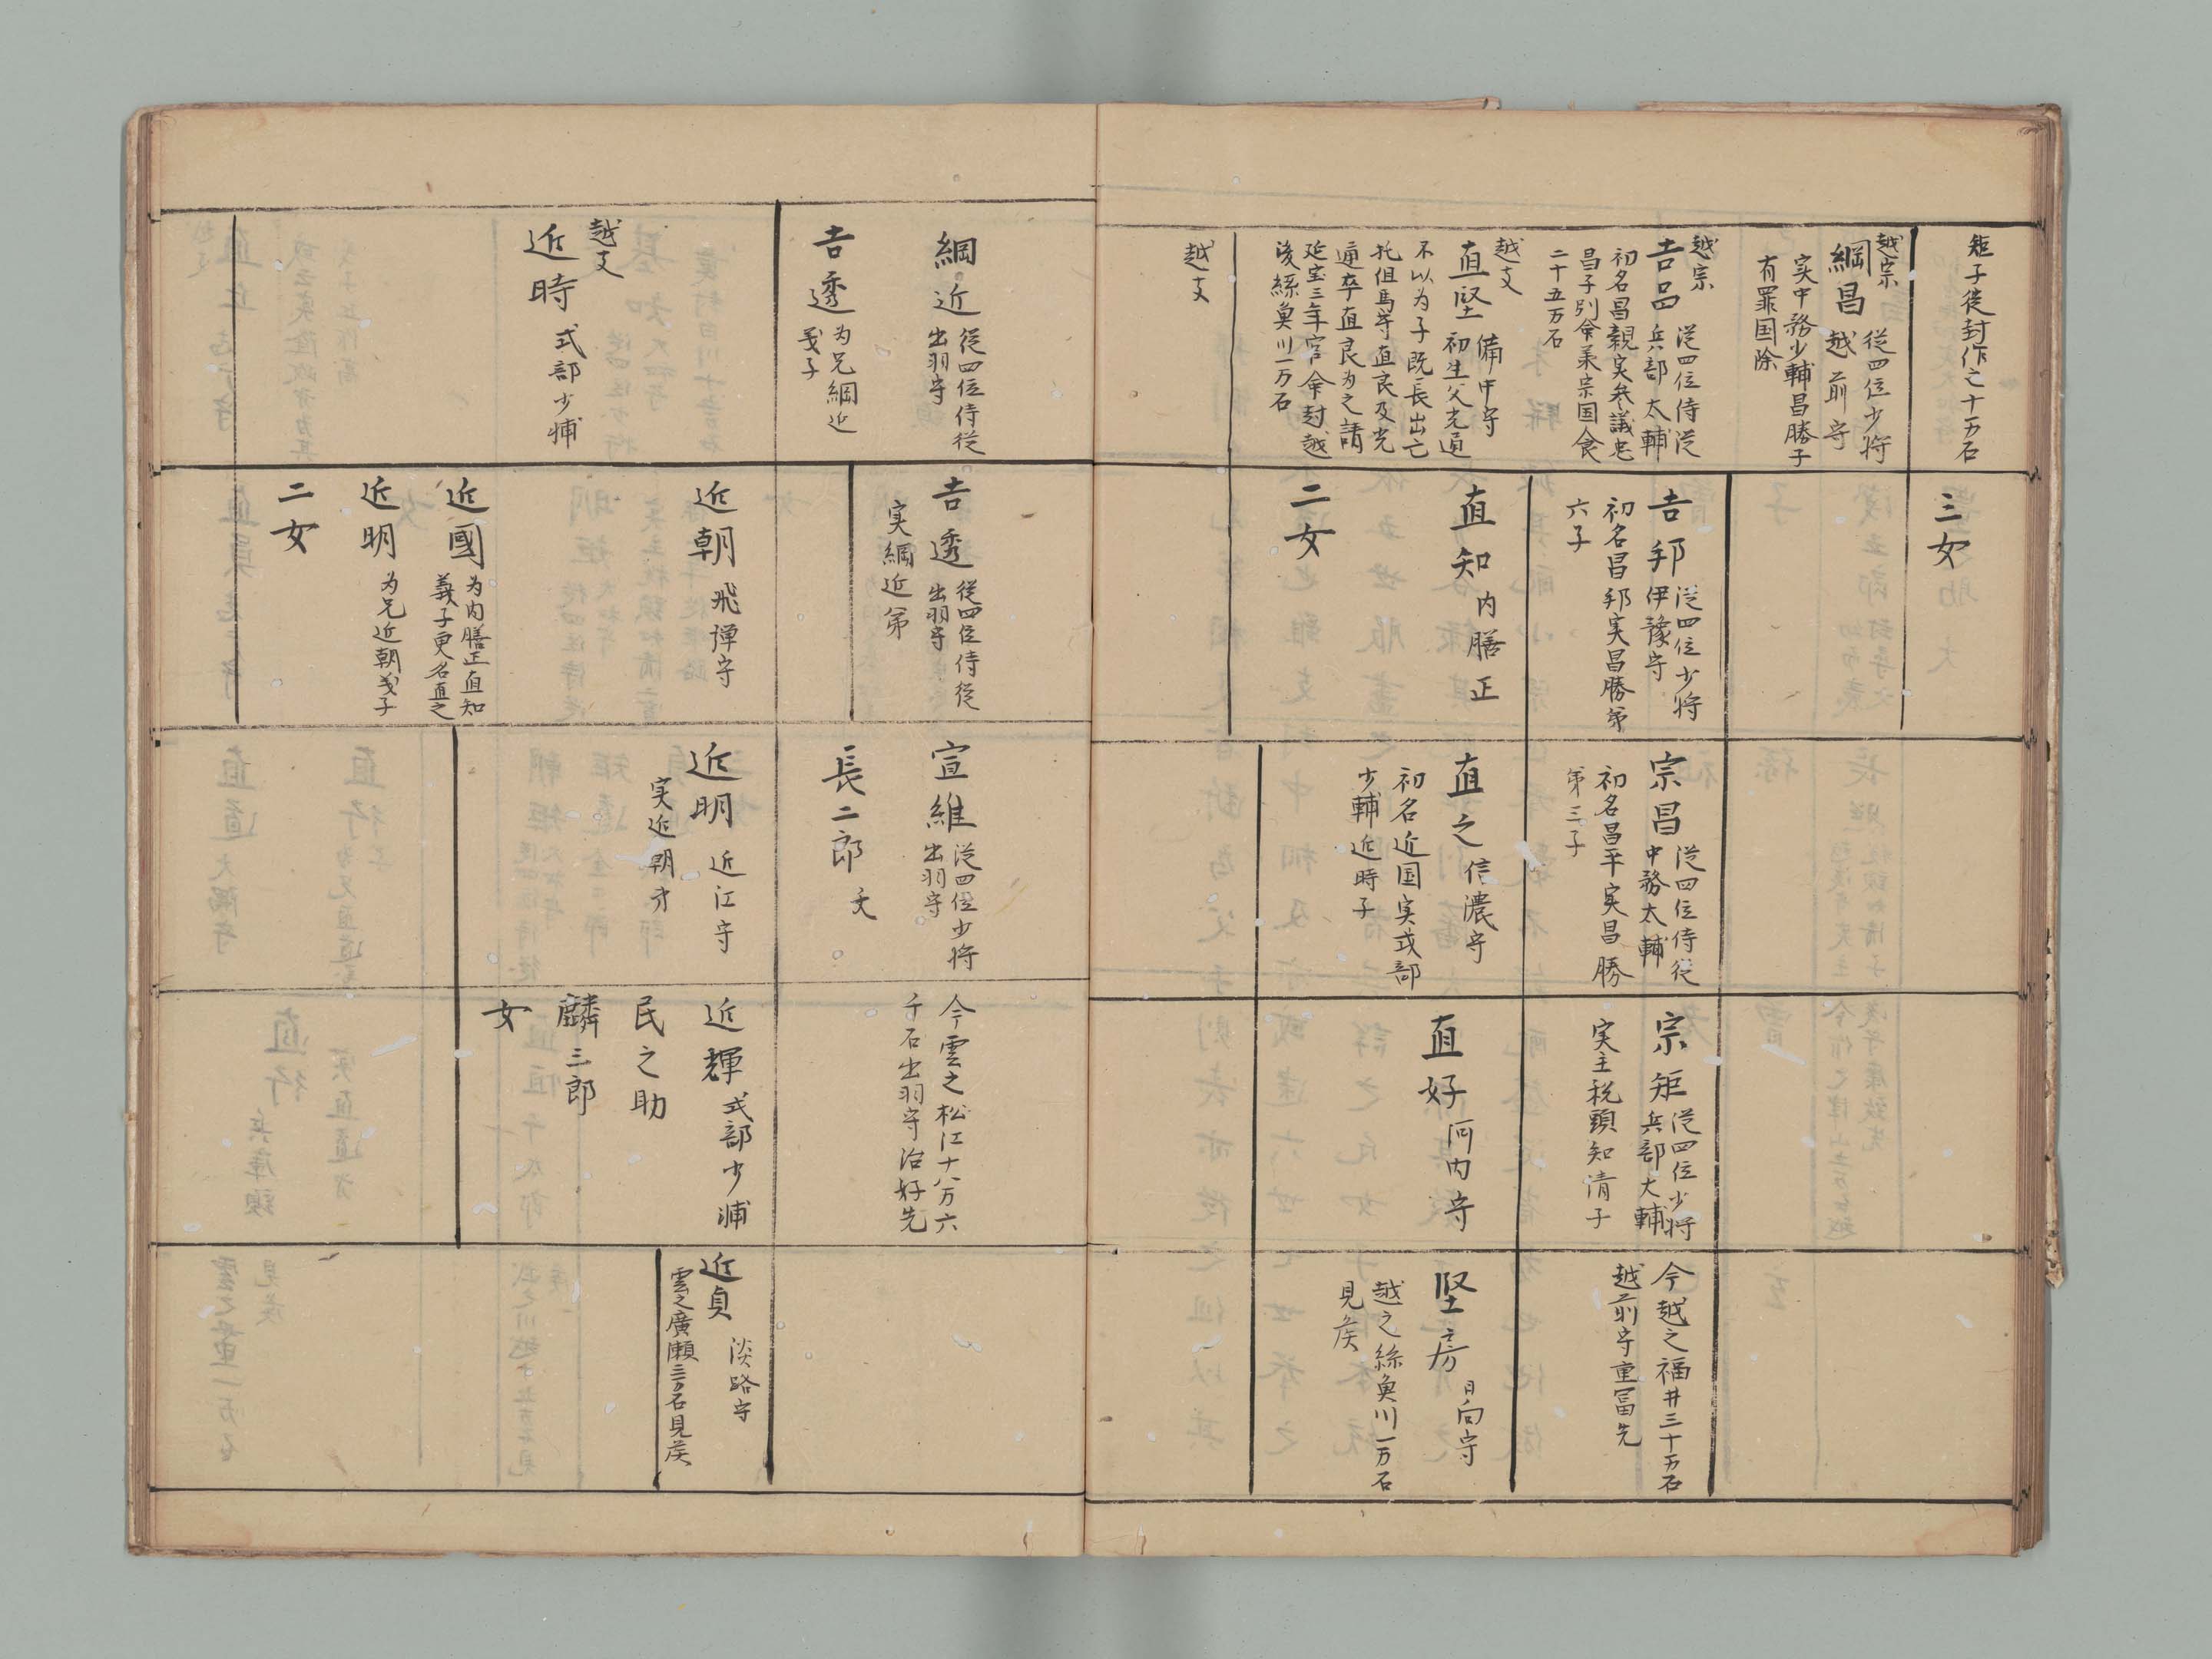 矩子從封作之十万石
越宗
綱昌
從四位少将
越前守
実中務少輔昌勝子
有罪国除
越宗
吉品
従四位侍従
兵部太輔
初名昌親実参議忠
昌子別命承宗国食
二十五万石
越支
直堅
備中守
初生父光通
不以为子既長出亡
托但馬守直良及光
通卒直良为之請
延宝三年官命封越
後絲魚川一万石
越支
三女
吉邦
従四位少将
伊豫守
初名昌邦実昌勝第
六子
直知
内膳正
二女
宗昌
従四位侍従
中務太輔
初名昌平実昌勝
第三子
直之
信濃守
初名近国実式部
少輔近時子
宗矩
従四位少将
兵部大輔
実主税頭知清子
直好
河内守
今越之福井三十万石
越前守重冨先
堅房
日向守
越之絲魚川一万石
見矦
綱近
從四位侍従
出羽守
吉透
为兄綱近
義子
越支
近時
式部少輔
吉透
從四位侍従
出羽守
実綱近第
近朝
飛弾守
近國
为内膳正直知
義子更名直之
近明
为兄近朝義子
二女
宣維
従四位少将
出羽守
長二郎
夭
近明
近江守
実近朝才
今雲之松江十八万六
千石出羽守治好先
近輝
式部少浦
民之助
麟三郎
女
近貞
淡路守
雲之廣瀬三万石見矦